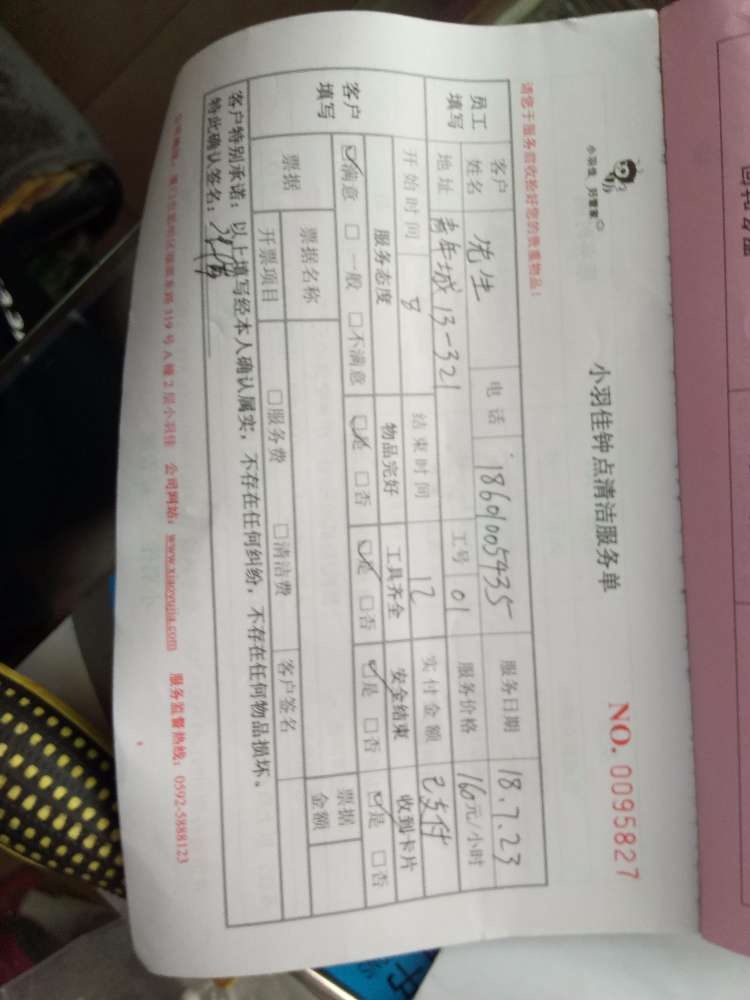 小羽佳 好管家
小羽佳钟点清洁服务单
NO. 0095827
请您于服务前收捡好您的贵重物品!
员工填写 客户姓名 先生 电话 18601005435 服务日期 18.7.23
地址 青年城13-321 工号 01 服务价格 160元/小时
开始时间 8 结束时间 12 实付金额 已支付
客户填写 服务态度 物品完好 工具齐全 安全结束 收到卡片
☑满意 □一般 □不满意 ☑是 □否 ☑是 □否 ☑是 □否 ☑是 □否
票据 票据名称 票据金额
开票项目 □服务费 □清洁费 客户签名
客户特别承诺:以上填写经本人确认属实,不存在任何纠纷,不存在任何物品损坏。
特此确认签名:
319号A幢2层小羽佳 公司网站:www.xiaoyujia.com 服务监督热线:0592-5888123